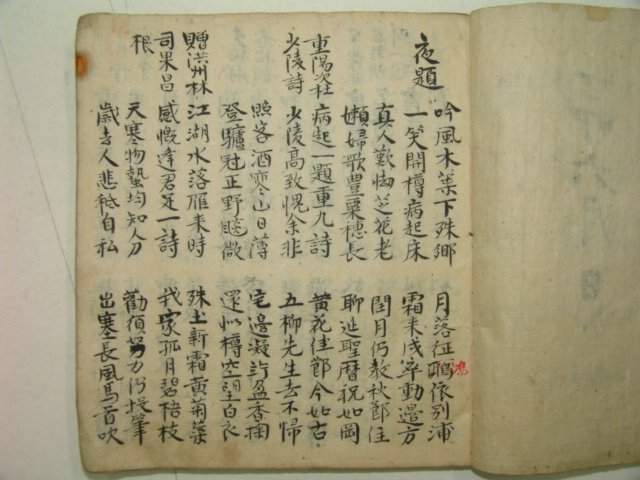 夜題
吟風木葉下殊鄉 月落征鴻依別浦
一笑開樽病起床 霜未成寒動邊方
真人歎惜芝花老 閏月仍教秋節佳
嬾婦歌豊粟穗長 聊延聖曆祝如岡
重陽次杜 病起一題重九詩 黃花佳節今如古
少陵詩 少陵高致愧余非 五柳先生去不歸
照客酒寒山日薄 宅邊凝許盈香掬
登驢冠正野颷微 還似樽空望白衣
贈洪州林 江湖水落雁來時 殊土新霜黃菊葉
司果昌 感慨逢君足一詩 我家孤月碧梧枝
根 天寒物蟄均知分 勸須努力仍投筆
歲去人悲秪自私 出塞長風馬首吹